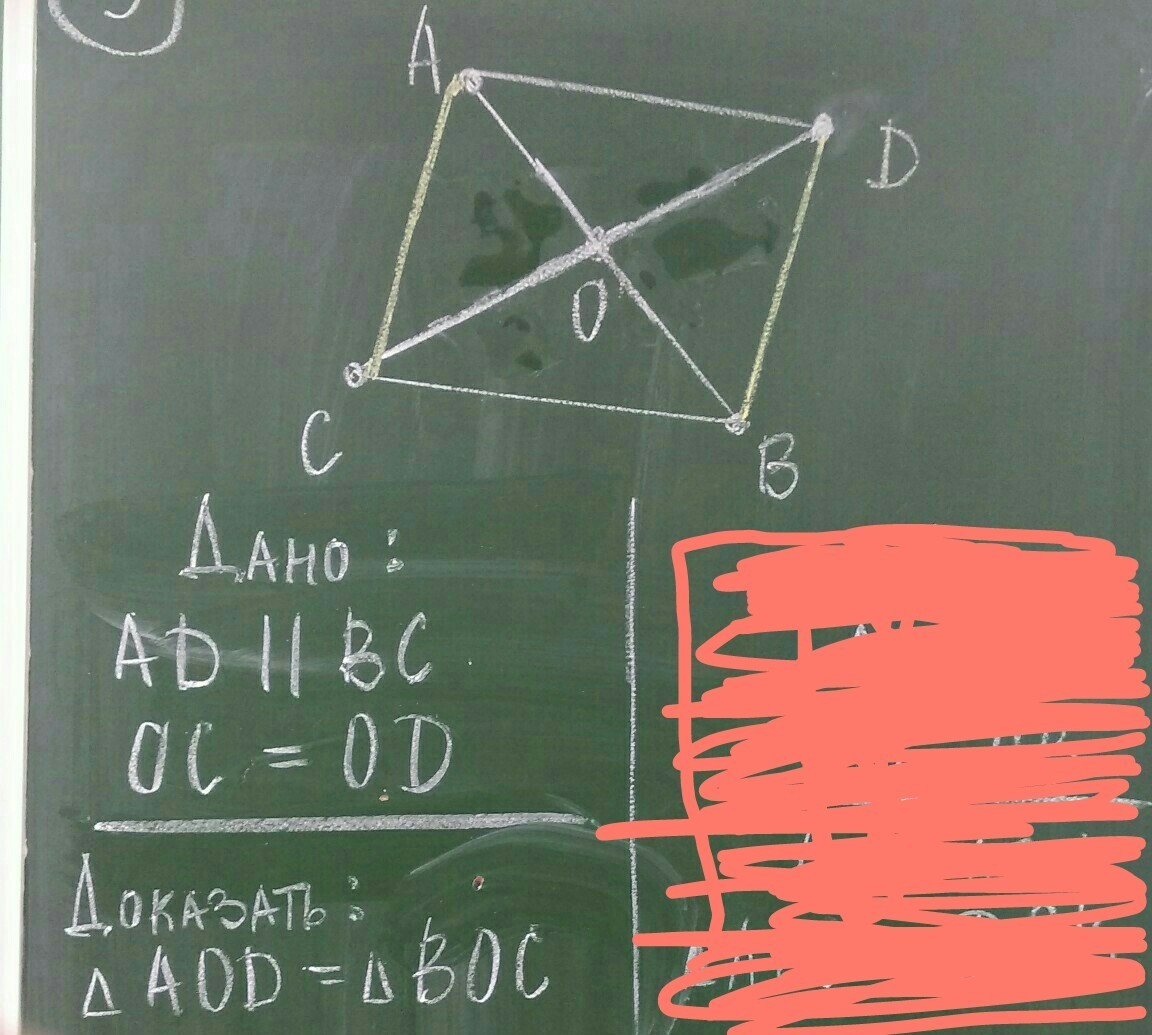 A
D
O
C
B
Дано:
AD || BC
OC = OD
Доказать:
△ AOD = △ BOC